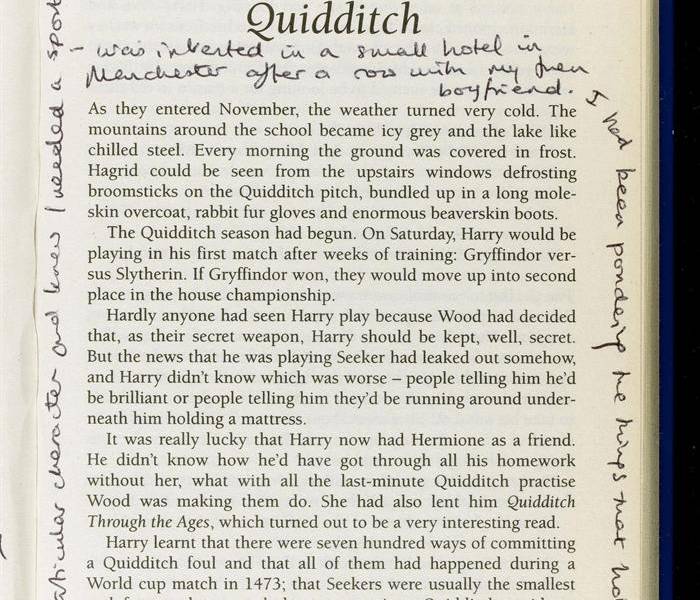 Quidditch
- was invented in a small hotel in
Manchester after a row with my then
boyfriend. I had been pondering the things that hol
As they entered November, the weather turned very cold. The
mountains around the school became icy grey and the lake like
chilled steel. Every morning the ground was covered in frost.
Hagrid could be seen from the upstairs windows defrosting
broomsticks on the Quidditch pitch, bundled up in a long mole-
skin overcoat, rabbit fur gloves and enormous beaverskin boots.
The Quidditch season had begun. On Saturday, Harry would be
playing in his first match after weeks of training: Gryffindor ver-
sus Slytherin. If Gryffindor won, they would move up into second
place in the house championship.
Hardly anyone had seen Harry play because Wood had decided
that, as their secret weapon, Harry should be kept, well, secret.
But the news that he was playing Seeker had leaked out somehow,
and Harry didn't know which was worse – people telling him he'd
be brilliant or people telling him they'd be running around under-
neath him holding a mattress.
It was really lucky that Harry now had Hermione as a friend.
He didn't know how he'd have got through all his homework
without her, what with all the last-minute Quidditch practise
Wood was making them do. She had also lent him Quidditch
Through the Ages, which turned out to be a very interesting read.
Harry learnt that there were seven hundred ways of committing
a Quidditch foul and that all of them had happened during a
World cup match in 1473; that Seekers were usually the smallest
ticular character and knew I needed a sport